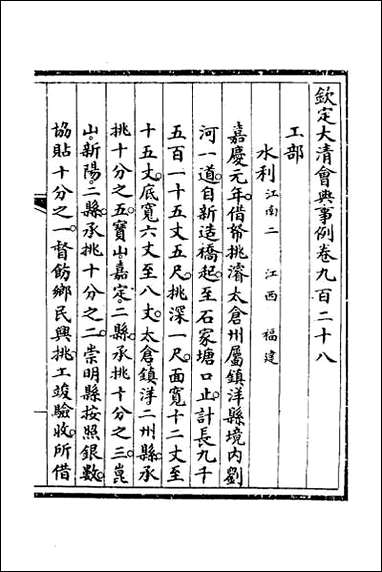 欽定大清會典事例卷九百二十八
工部
水利 江南二 江西 福建
嘉慶元年。借帑挑濬太倉州屬鎮洋縣境內劉
河一道。自新造橋起。至石家塘口止。計長九千
五百一十五丈五尺。挑深一尺。面寬十二丈至
十五丈。底寬六丈至八丈。太倉鎮洋二州縣。承
挑十分之五。寶山。嘉定。二縣。承挑十分之三。崑
山。新陽。二縣。承挑十分之二。崇明縣按照銀數。
協貼十分之一。督飭鄉民興挑。工竣驗收。所借